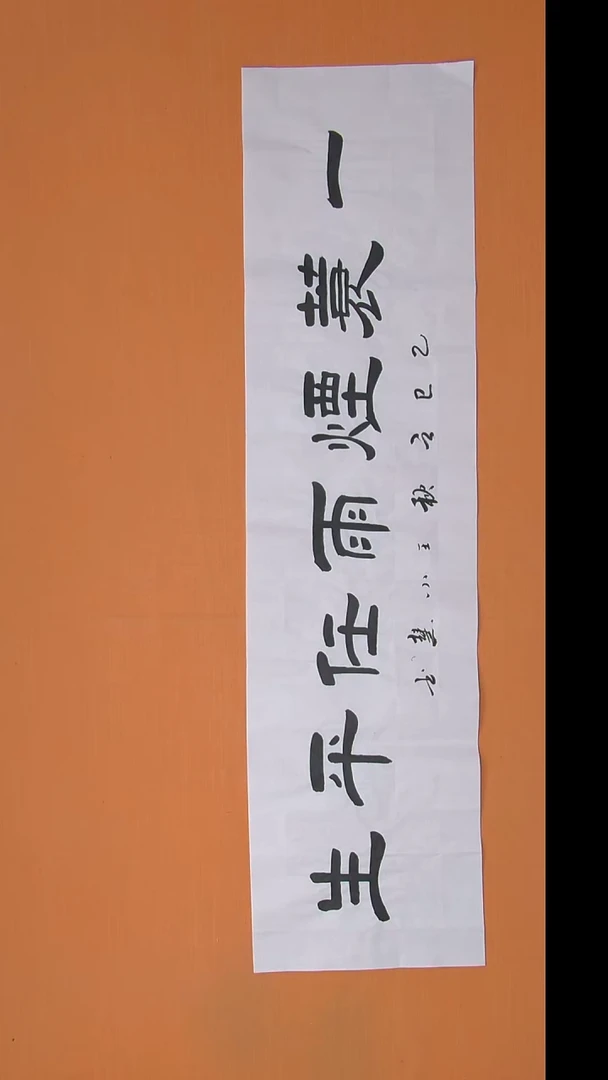 一蓑煙雨任平生
乙巳立秋王小慧书